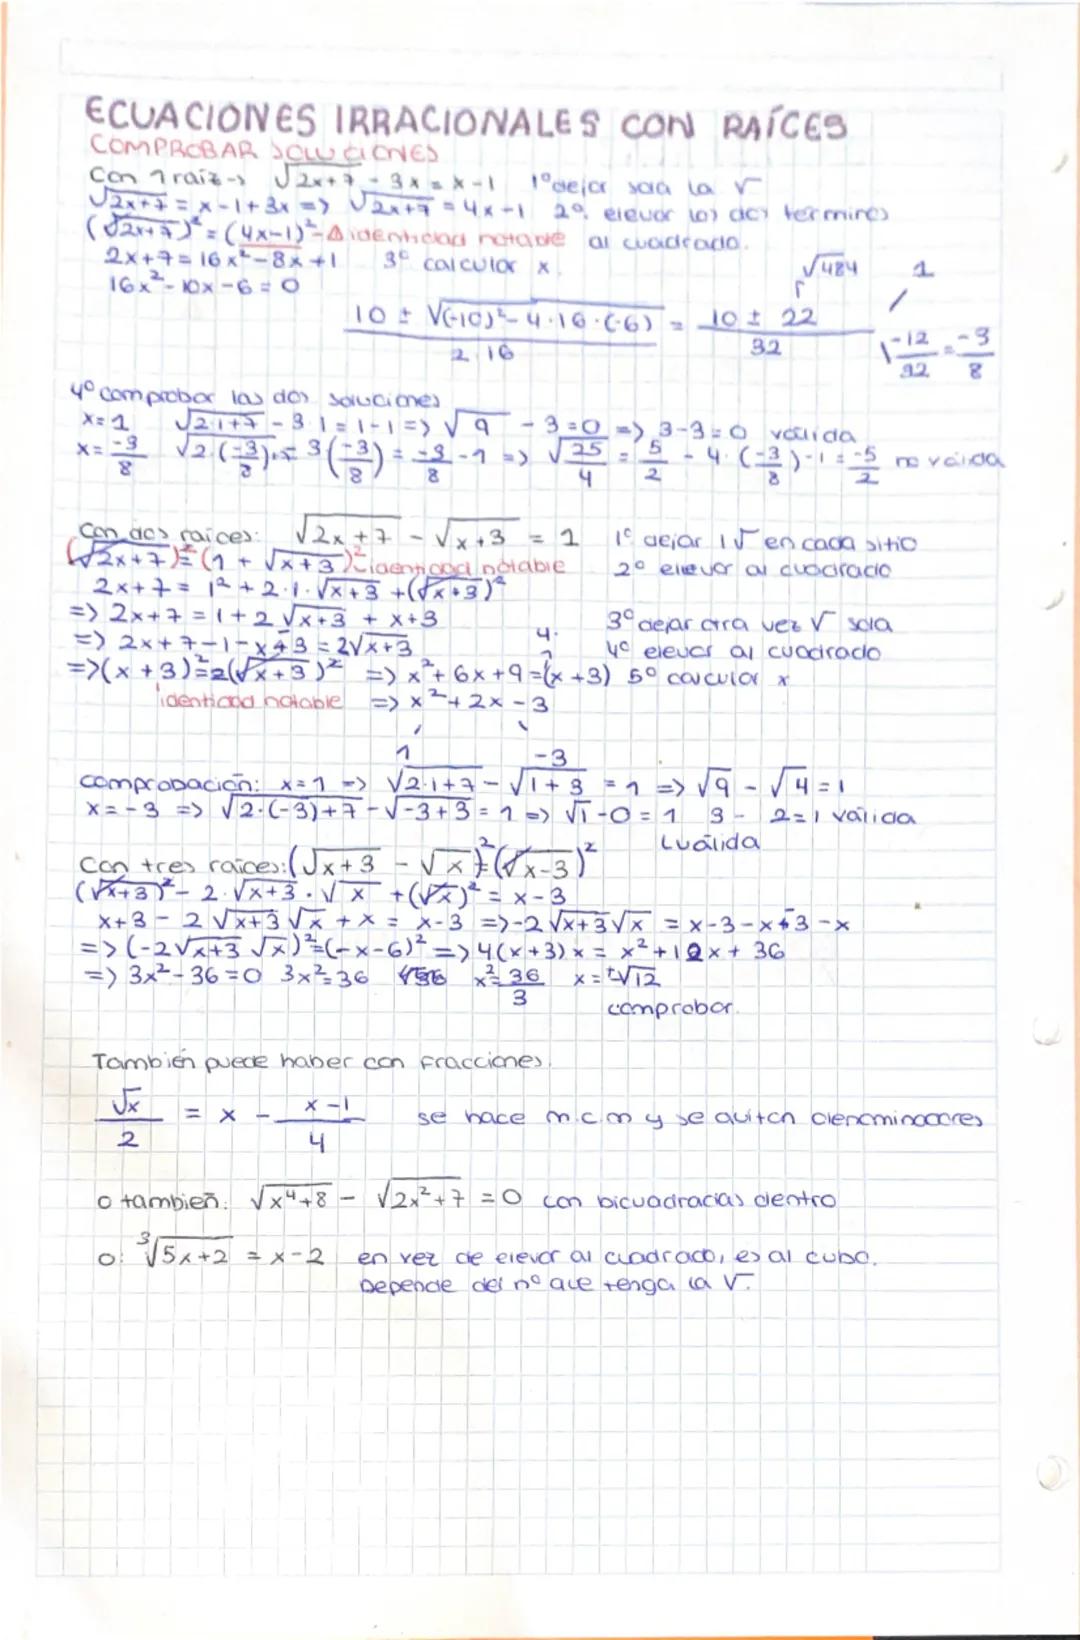 ECUACIONES IRRACIONALES CON RAÍCES
COMPROBAR SOLUCIONES
Con 1 raíz -> √2x+7 - 3x = x-1 1º dejar sola la √
√2x+7 = x-1+3x => √2x+7 = 4x-1 2º elevar los dos terminos
(√2x+7)² = (4x-1)² -> identidad notable al cuadrado.
2x+7 = 16x²-8x+1 3º calcular x.
16x²-10x-6=0
√484 1
10 ± √(-10)²-4·16·(-6) = 10 ± 22
2·16 32
-12 = -3
32 8
4º comprobar las dos soluciones
x=1 √2·1+7 - 3·1 = 1-1 => √9 - 3=0 => 3-3=0 válida
x= -3/8 √2·(-3/8)+7 - 3(-3/8) = -3/8 -1 => √25/4 = 5/2 - 4·(-3/8)-1 = -5/2 no válida
Con dos raíces: √2x+7 - √x+3 = 1 1º dejar 1√ en cada sitio
(√2x+7)² = (1 + √x+3)² identidad notable 2º elevar al cuadrado
2x+7 = 1² + 2·1·√x+3 + (√x+3)²
=> 2x+7 = 1+2√x+3 + x+3 3º dejar otra vez √ sola
=> 2x+7-1-x-3 = 2√x+3 4º elevar al cuadrado
=> (x+3)² = 2(√x+3)² => x²+6x+9 = 4(x+3) 5º calcular x
identidad notable => x²+2x-3
1 -3
comprobación: x=1 => √2·1+7 - √1+3 = 1 => √9 - √4 = 1
x=-3 => √2·(-3)+7 - √-3+3 = 1 => √1-0 = 1 3 - 2=1 válida
válida
Con tres raíces: (√x+3 - √x)² = (√x-3)²
(√x+3)² - 2·√x+3·√x + (√x)² = x-3
x+3 - 2√x+3√x + x = x-3 => -2√x+3√x = x-3-x-3-x
=> (-2√x+3√x)² = (-x-6)² => 4(x+3)x = x²+12x+36
=> 3x²-36=0 3x²=36 x²= 36/3 x=±√12
comprobar.
También puede haber con fracciones.
√x/2 = x - x-1/4 se hace m.c.m y se quitan denominadores
o también: √x⁴+8 - √2x²+7 = 0 con bicuadradas dentro
o: ³√5x+2 = x-2 en vez de elevar al cuadrado, es al cubo.
Depende del nº que tenga la √.